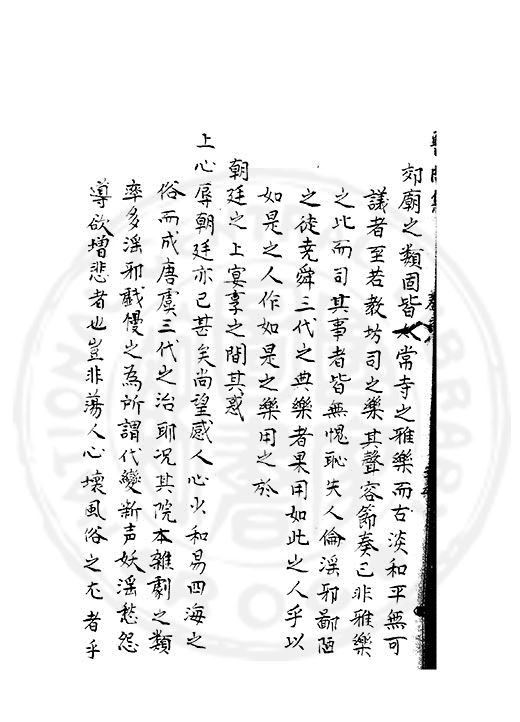 郊廟之類固皆太常寺之雅樂而古淡和平無可
議者至若教坊司之樂其聲容節奏已非雅樂
之比而司其事者皆無愧恥失人倫淫邪鄙陋
之徒堯舜三代之典樂者果用如此之人乎以
如是之人作如是之樂用之於
朝廷之上宴享之間其惑
上心辱朝廷亦已甚矣尚望感人心火和易四海之
俗而成唐虞三代之治耶况其院本雜劇之類
率多淫邪戲慢之為所謂代變新声妖淫愁怨
導欲增悲者也豈非蕩人心壞風俗之尤者乎